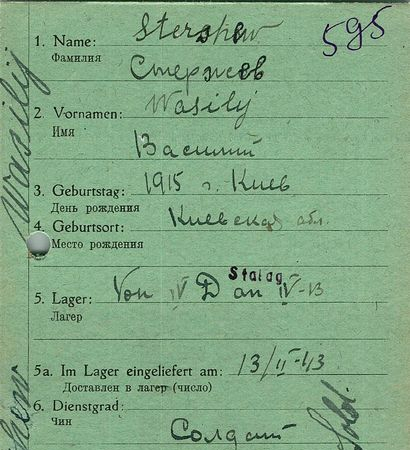 595
1. Name: Stershew
Фамилия
Стержев
2. Vornamen: Wasilij
Имя
Василий
3. Geburtstag: 1915 г. Киев
День рождения
4. Geburtsort: Киевская обл.
Место рождения
Stalag
5. Lager: Von IV D an IV-B
Лагер
5a. Im Lager eingeliefert am: 13/II-43
Доставлен в лагер (число)
6. Dienstgrad:
Чин
Солдат
Wasilij
Sold.